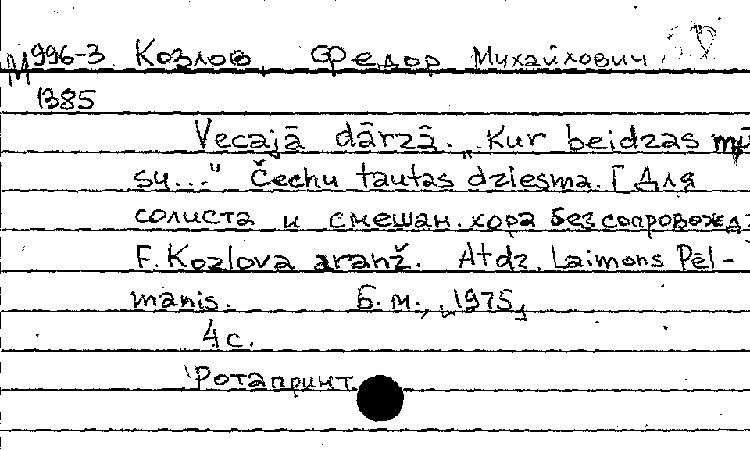 М 996-3 Козлов, Федор Михайхович
1385
Vecajā dārzā. „Kur beidzas mū
su..." Čechu tautas dziesma. [Для
солиста и смешан. хора без сопровожд.]
F. Kozlova aranž. Atdz. Laimons Pēl-
manis. Б. м., [1975]
4 с.
Ротапринт